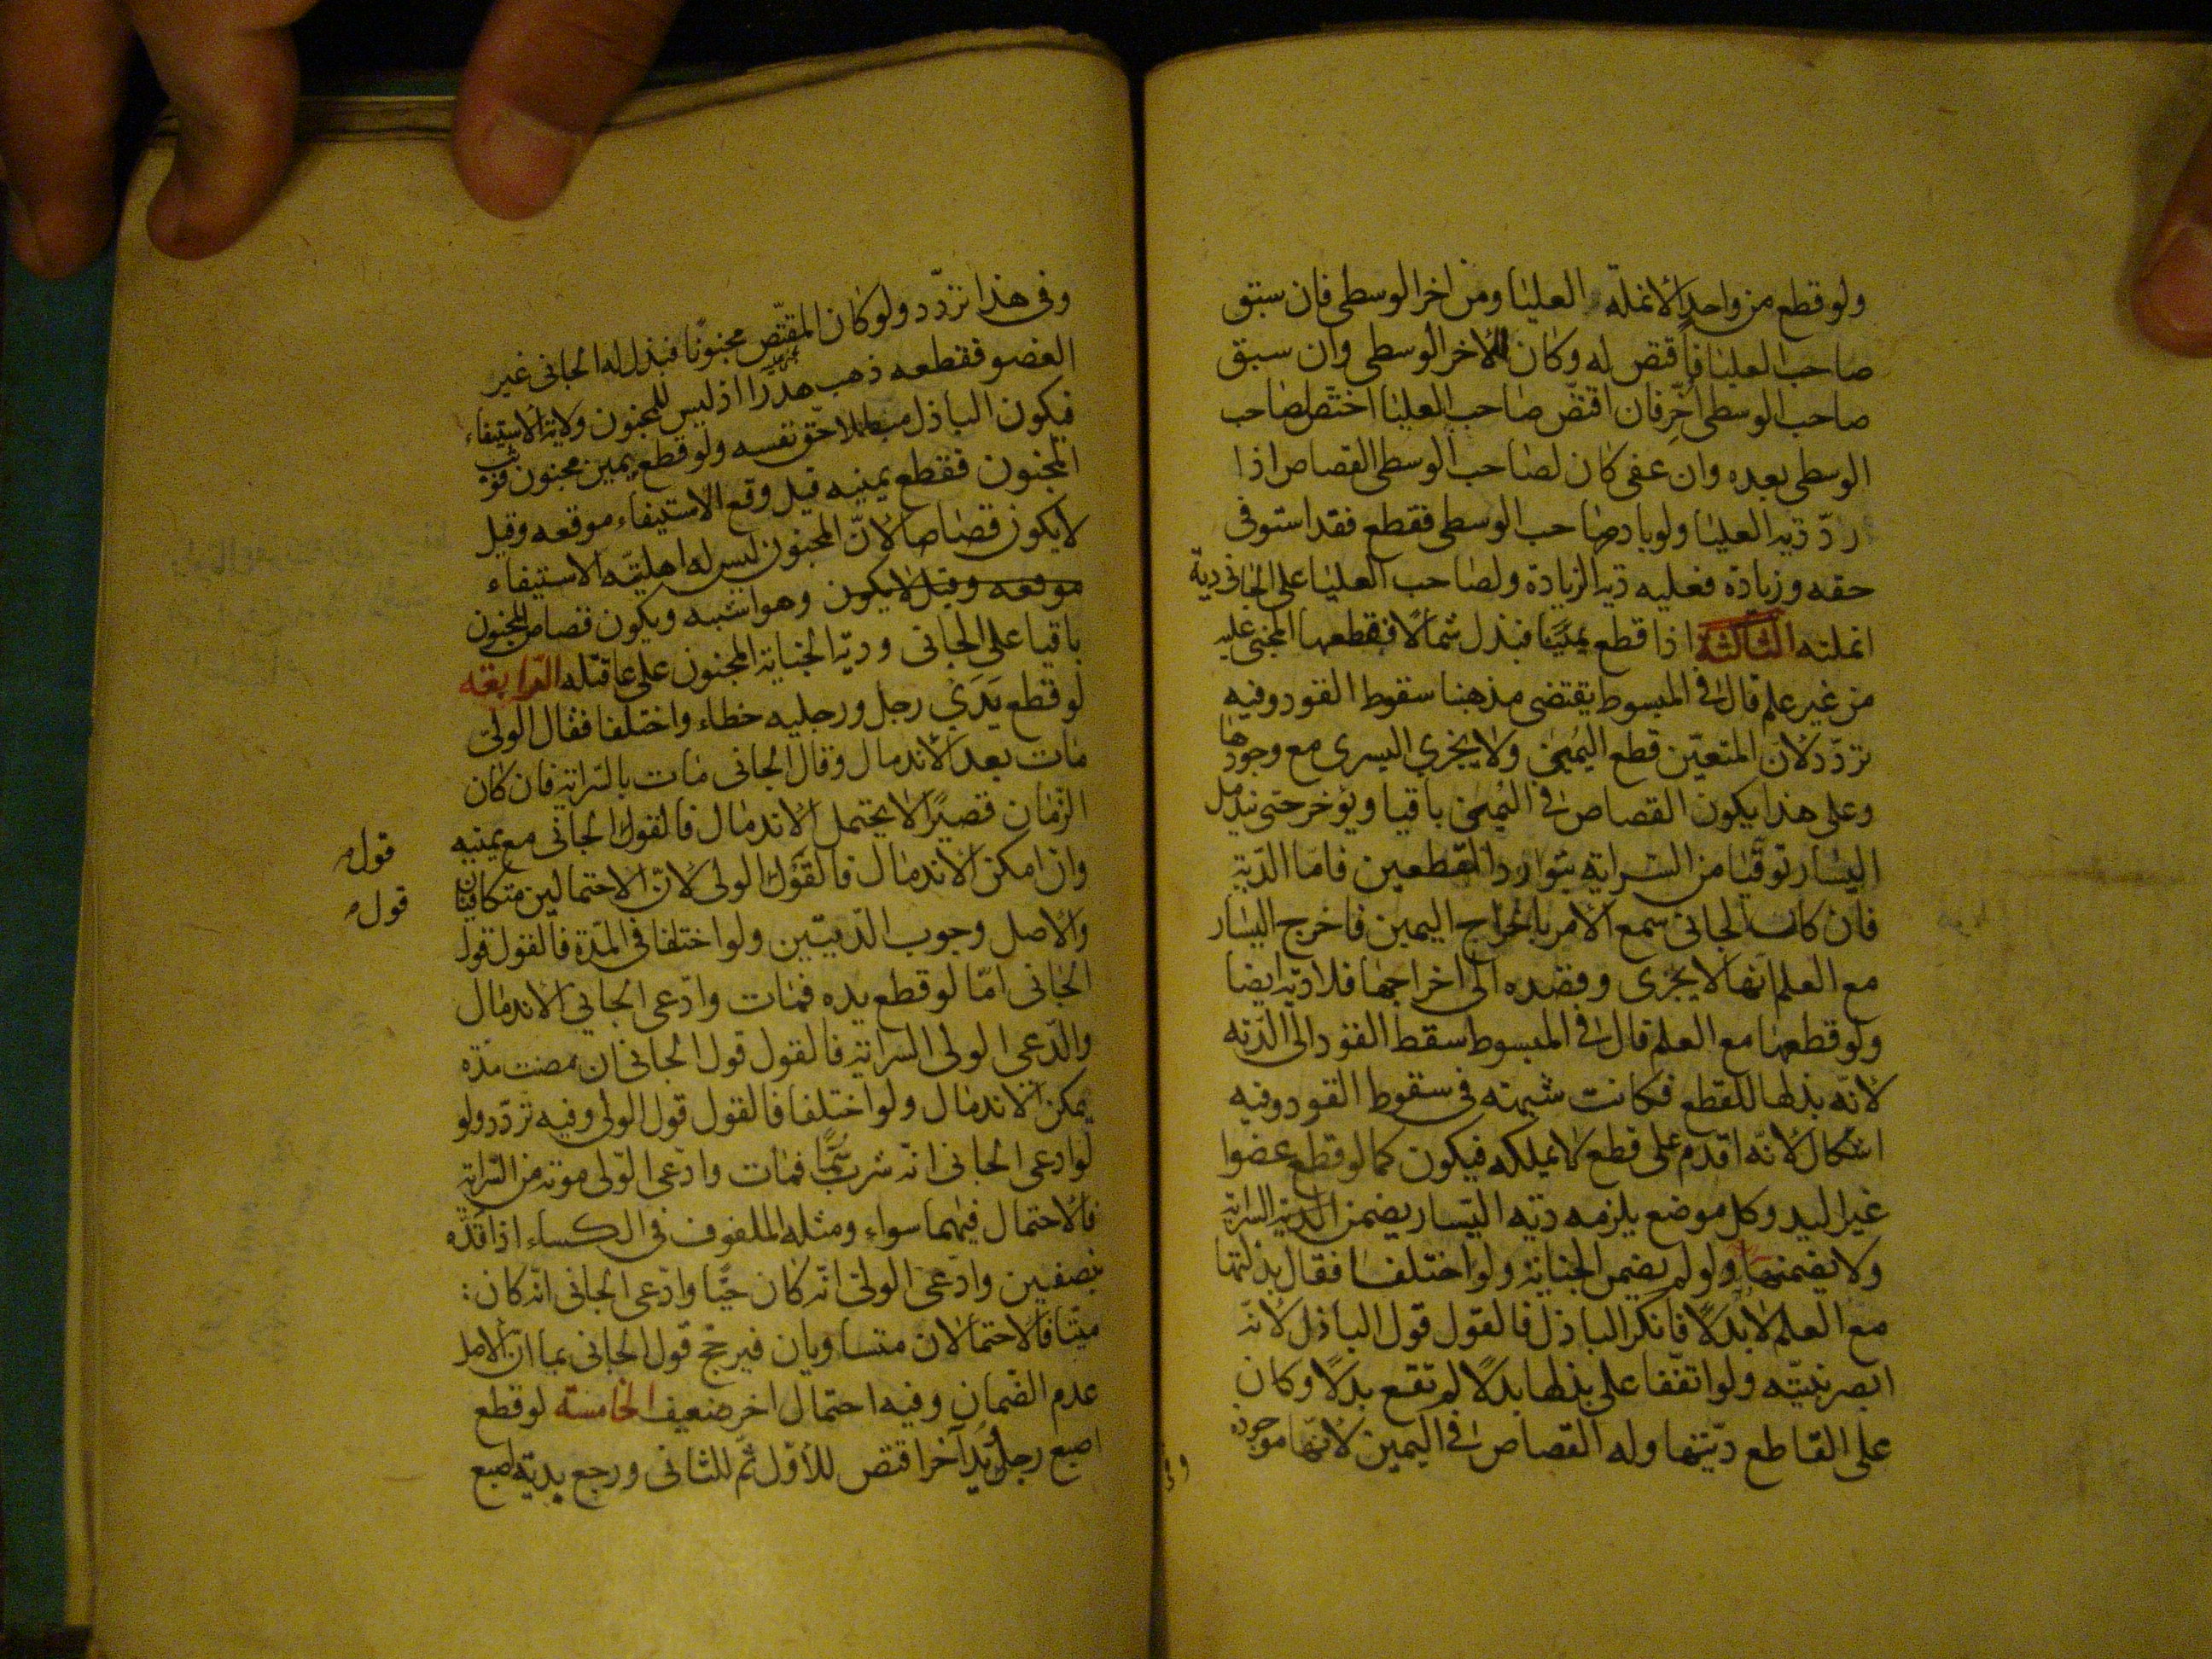 ولو قطع من واحد الانملة العليا ومن اخر الوسطى فان سبق
صاحب العليا فاقتص له وكان للاخر الوسطى وان سبق
صاحب الوسطى اخّر فان اقتصّ صاحب العليا اختصّ لصاحب
الوسطى بعده وان عفى كان لصاحب الوسطى القصاص اذا
ردّ دية العليا ولو بادر صاحب الوسطى فقطع فقد استوفى
حقه وزيادة فعليه دية الزيادة ولصاحب العليا على الجانى دية
انملته الثالثة اذا قطع يمينًا فبذل شمالًا فقطعها المجنى عليه
من غير علم قال فى المبسوط يقتضى مذهبنا سقوط القود وفيه
تردّد لانّ المتعيّن قطع اليمنى ولا يجزي اليسرى مع وجودها
وعلى هذا يكون القصاص فى اليمنى باقيا ويؤخر حتى يندمل
اليسار توقّيا من السراية بتوارد القطعين فامّا الدّية
فان كان الجانى سمع الامر باخراج اليمين فاخرج اليسار
مع العلم انّها لا يجزى وقصده الى اخراجها فلا دية ايضا
ولو قطعها مع العلم قال فى المبسوط سقط القود الى الدّية
لانّه بذلها للقطع فكانت شبهته فى سقوط القود وفيه
اشكال لانّه اقدم على قطع لا يملكه فيكون كما لو قطع عضوا
غير اليد وكل موضع يلزمه دية اليسار يضمن السراية
ولا يضمنها ولو لم يضمن الجناية ولو اختلفا فقال بذلتها
مع العلم لا بدلًا فانكر الباذل فالقول قول الباذل لانّه
ابصر بنيّته ولو اتفقا على بذلها بدلًا لم تقع بدلًا وكان
على القاطع ديّتها وله القصاص فى اليمين لانّها موجوده
وفى
وفى هذا تردّد ولو كان المقتّص مجنونًا فبذل له الجانى غير
العضو فقطعه ذهب هدرا اذ ليس للمجنون ولاية الاستيفاء
فيكون الباذل مبطلا حقّ نفسه ولو قطع يمين مجنون فوثب
المجنون فقطع يمينه قيل وقع الاستيفاء موقعه وقيل
لا يكون قصاصا لانّ المجنون ليس له اهليّة الاستيفاء
موقعه وقيل لا يكون وهو اشبه ويكون قصاص المجنون
باقيا على الجانى وديّة الجناية المجنون على عاقلته الرّابعة
لو قطع يَدَي رجل ورجليه خطاء واختلفا فقال الولى
مات بعد الاندمال وقال الجانى مات بالسّراية فان كان
الزّمان قصيرًا لا يحتمل الاندمال فالقول الجانى مع يمينه
قول
وان امكن الاندمال فالقول الولى لانّ الاحتمالين متكافيان
قول
والاصل وجوب الدّيتين ولو اختلفا فى المدّة فالقول قول
الجانى امّا لو قطع يده فمات وادّعى الجانى الاندمال
والدّعى الولى السراية فالقول قول الجانى ان مضت مدّة
يمكن الاندمال ولو اختلفا فالقول قول الولى وفيه تردّد ولو
لو ادعى الجانى انّه شرب سُمًّا فمات وادّعى الوّلى موته من السّراية
فالاحتمال فيهما سواء ومثله الملفوف فى الكساء اذا قدّه
بنصفين وادّعى الولى انّه كان حيًّا وادّعى الجانى انّه كان :
ميّتا فالاحتمالان متساويان فيرجّح قول الجانى بما انّ الاصل
عدم الضّمان وفيه احتمال اخر ضعيف الخامسة لو قطع
اصبع رجل ويد آخر اقتص للأوّل ثمّ للثانى ورجع بديّة اصبع